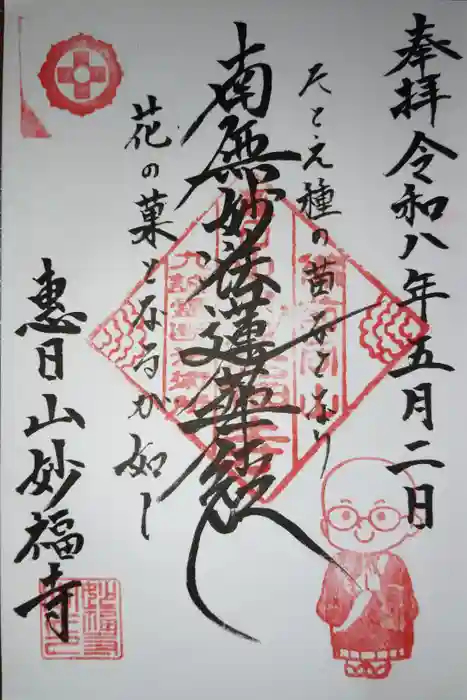 奉拝 令和八年五月二日
たとえ種の苗となり
南無妙法蓮華経
花の菓となるが如し
惠日山妙福寺